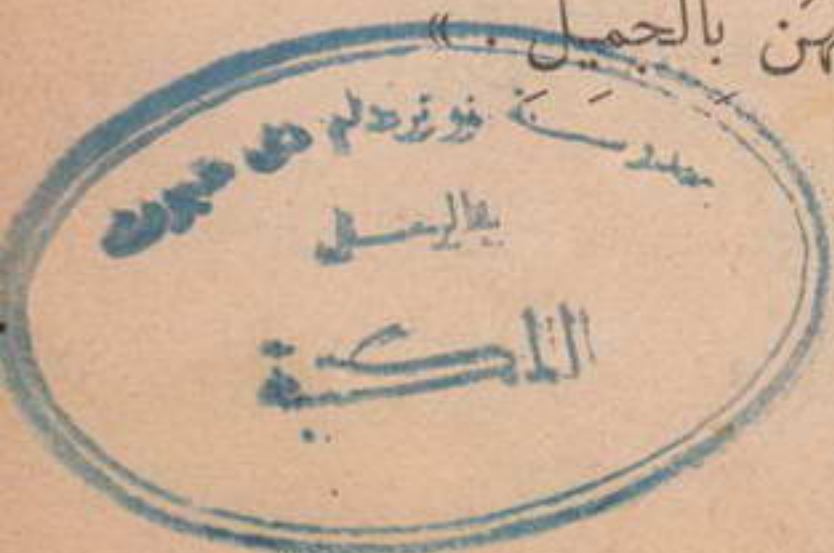 بِالْجَمِيل . »
مدرسة نوتردام دى سيون
بالرمل
المكتبة